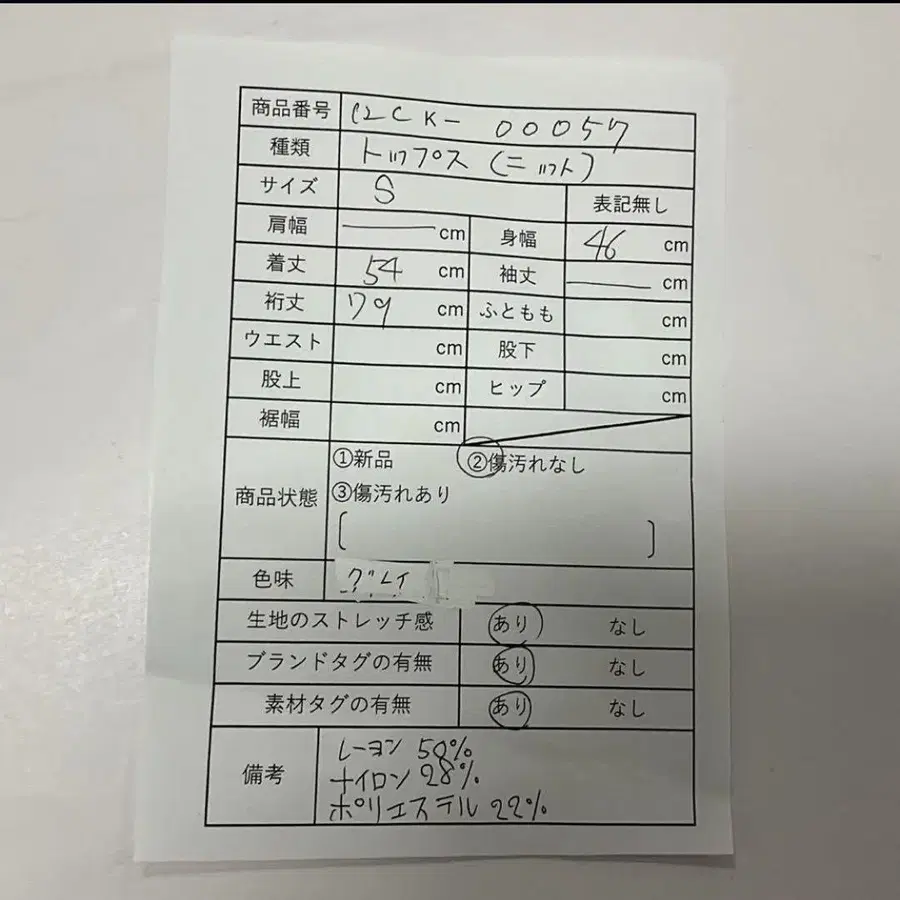 商品番号 12CK-00057
種類 トップス(ニット)
サイズ S 表記無し
肩幅 — cm 身幅 46 cm
着丈 54 cm 袖丈 — cm
裄丈 79 cm ふともも cm
ウエスト cm 股下 cm
股上 cm ヒップ cm
裾幅 cm
①新品 ②傷汚れなし
商品状態 ③傷汚れあり
[ ]
色味 グレイ
生地のストレッチ感 あり なし
ブランドタグの有無 あり なし
素材タグの有無 あり なし
備考 レーヨン 50%
ナイロン 28%
ポリエステル 22%